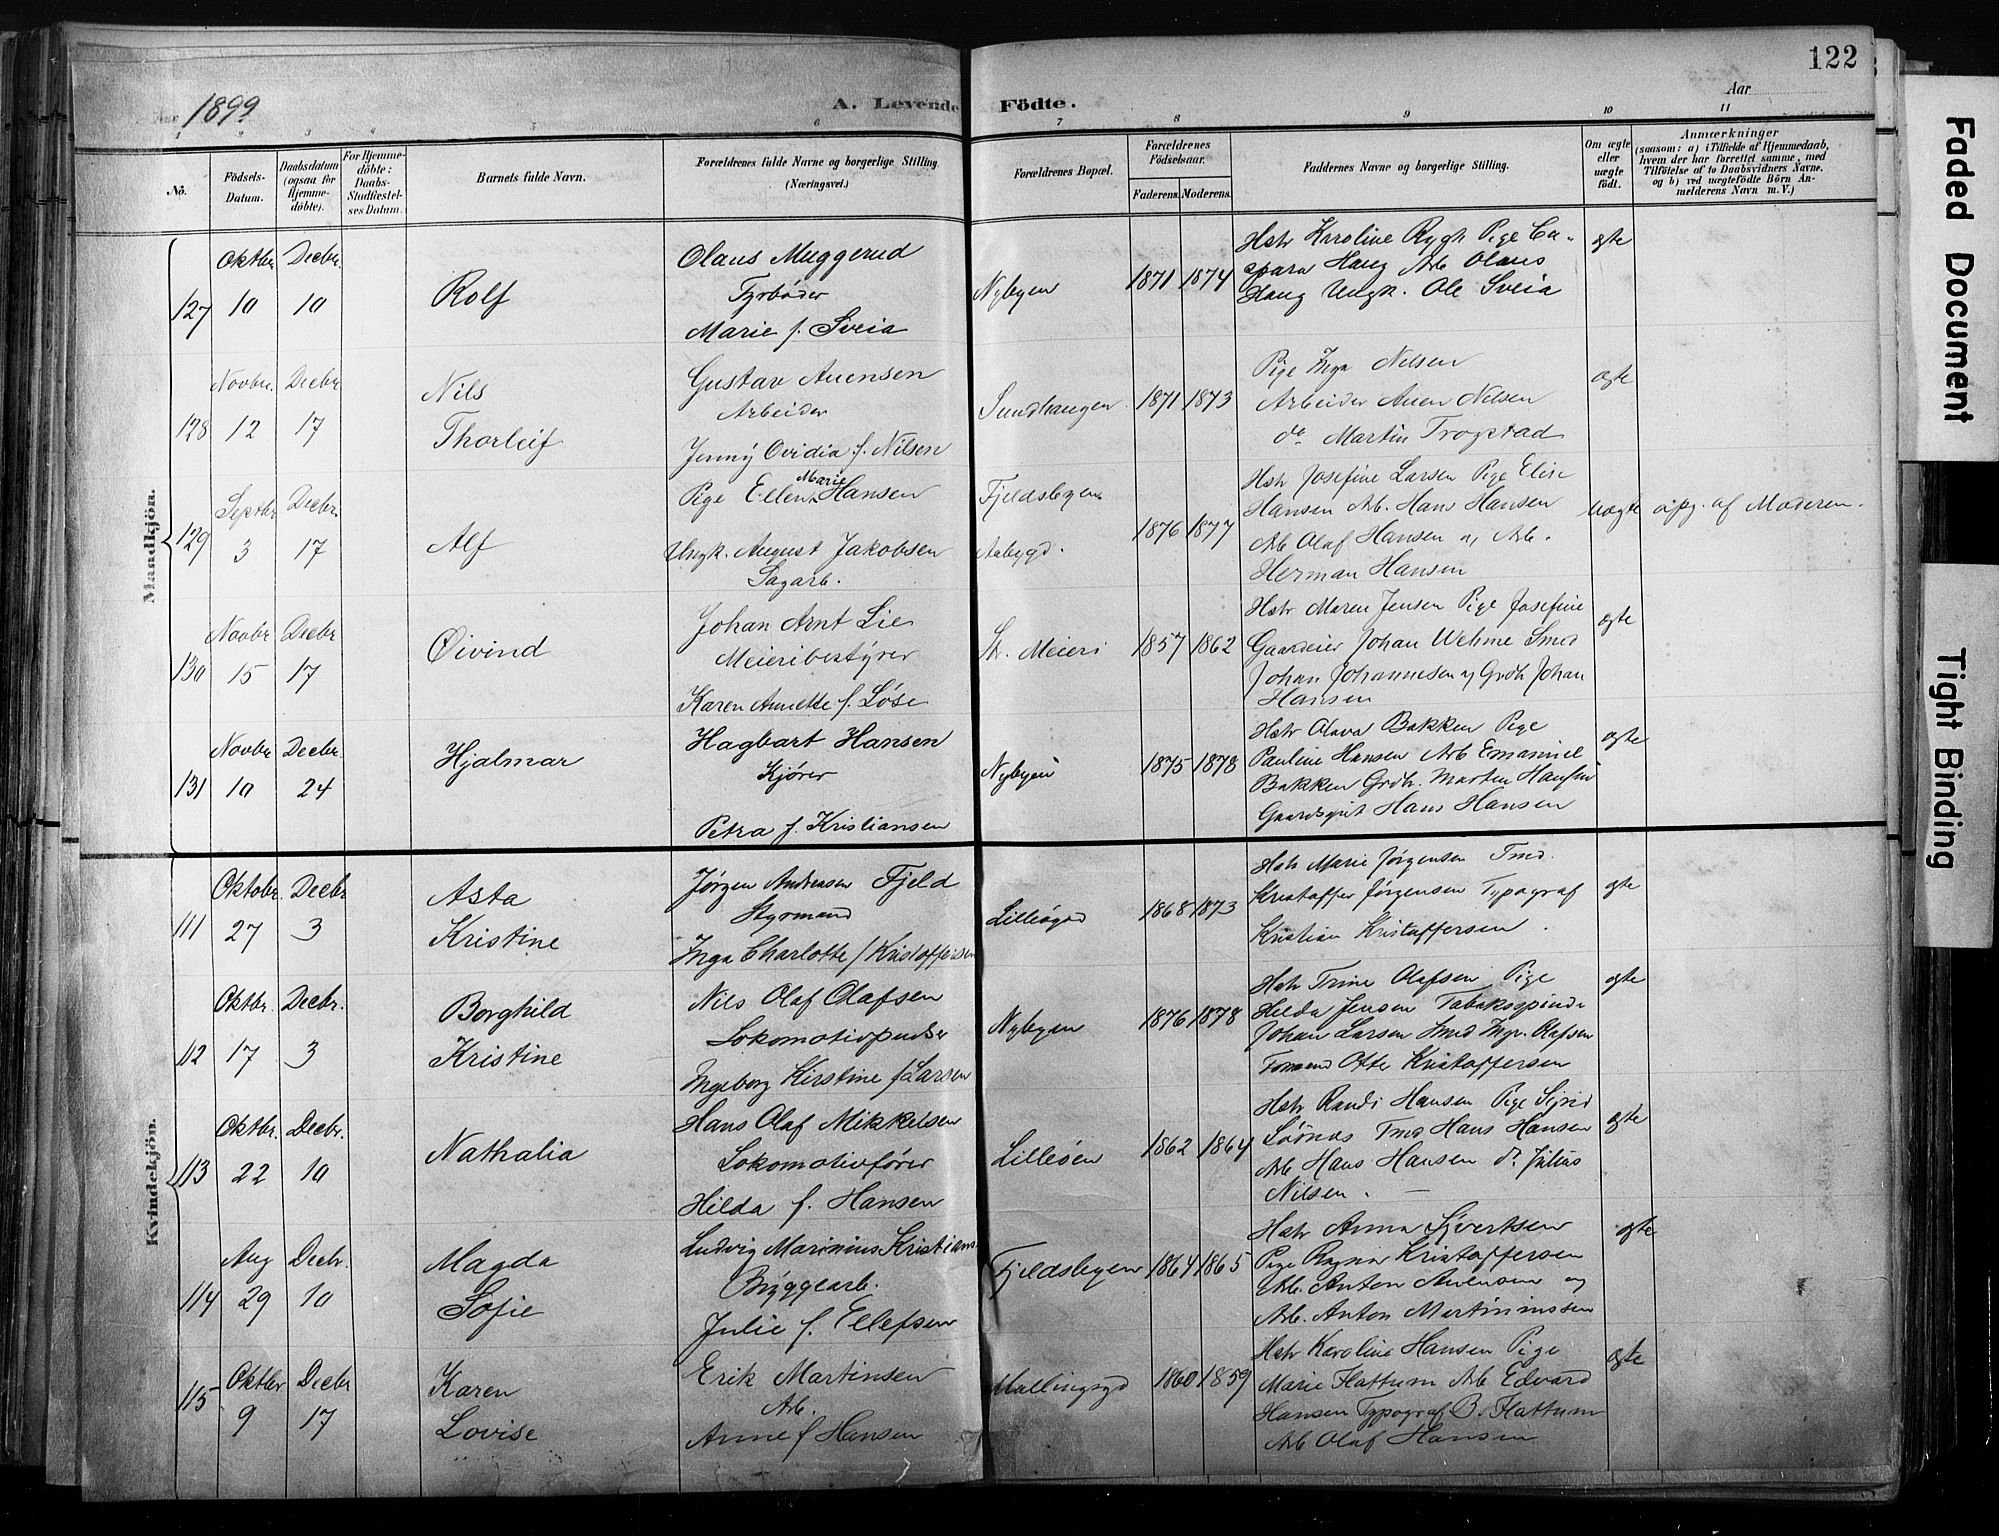 122
Aar 1899
A. Levende Födte.
Aar
1 2 3 4 5 6 7 8 9 10 11
No.
Fødsels-Datum.
Daabsdatum (ogsaa for Hjemme-döbte).
For Hjemme-döbte: Daabs-Stadfæstel-ses Datum.
Barnets fulde Navn.
Forældrenes fulde Navne og borgerlige Stilling.
(Næringsvei.)
Forældrenes Bopæl.
Forældrenes Födselsaar.
Faderens. Moderens.
Faddernes Navne og borgerlige Stilling.
Om ægte eller uægte födt.
Anmærkninger
(saasom: a) i Tilfælde af Hjemmedaab,
hvem der har forrettet samme, med
Tilföielse af to Daabsvidners Navne,
og b) ved uægtefödte Börn An-
melderens Navn m. V.)
Mandkjön.
127
Oktbr. 10
Decbr. 10
Rolf
Olaus Muggerud
Fyrbøder
Marie f. Sveia
Nybyen
1871 1874
Hstr Karoline Rygh Pige Ca-
spara Haug Arb Olaus
Haug Ungk. Ole Sveia
ægte
128
Novbr. 12
Decbr 17
Nils
Thorleif
Gustav Auensen
Arbeider
Jenny Ovidia f. Nilsen
Sundhaugen
1871 1873
Pige Inga Nilsen
Arbeider Auen Nilsen
do Martin Trogstad
ægte
129
Septbr 3
Decbr. 17
Alf
Pige Ellen Marie Hansen
Ungk. August Jakobsen
Sagarb.
Fjeldsbyen
Aabygd.
1876 1877
Hstr Josefine Larsen Pige Elise
Hansen Arb. Hans Hansen
Arb Olaf Hansen og Arb.
Herman Hansen
uægte
opg. af Moderen.
130
Novbr 15
Decbr 17
Øivind
Johan Arnt Lie
Meieribestyrer
Karen Annette f. Løse
Str. Meieri
1857 1862
Hstr Maren Jensen Pige Josefine
Gaardeier Johan Wehme Smed
Johan Johannesen og Grdb. Johan
Hansen
ægte
131
Novbr 10
Decbr. 24
Hjalmar
Hagbart Hansen
Kjører
Petra f. Kristiansen
Nybyen
1875 1878
Hstr Olava Bakken Pige
Pauline Hansen Arb Emanuel
Bakken Grdb. Marten Hansen
Hans Hansen
ægte
Kvindekjön.
111
Oktobr. 27
Decbr 3
Asta
Kristine
Jørgen Andreasen Fjeld
Styrmand
Inga Charlotte f Kristoffersen
Lilleøgd
1868 1873
Hstr Marie Jørgensen Tmd.
Kristoffer Jørgensen Typograf
Kristian Kristoffersen.
ægte
112
Oktbr. 17
Decbr. 3
Borghild
Kristine
Nils Olaf Olafsen
Lokomotivpudser
Ingeborg Kirstine f Larsen
Nybyen
1876 1878
Hstr Trine Olafsen Pige
Hilda Jensen Tobaksspinder
Johan Larsen Smed Ingv. Olafsen
Tømmermd Otter Kristoffersen
ægte
113
Oktbr. 22
Decbr. 10
Nathalia
Hans Olaf Mikkelsen
Lokomotivfører
Hilda f. Hansen
Lilleøen
1862 1864
Hstr Randi Hansen Pige Sigrid
Tmd Hans Hansen
Arb Hans Hansen do Julius
Nilsen.
ægte
114
Aug 29
Decbr. 10
Magda
Sofie
Ludvig Marinius Kristians.
Byggearb.
Julie f. Ellefsen
Fjeldsbyen
1864 1865
Hstr Anna Syvertsen
Pige Ragna Kristoffersen
Arb. Anton Auensen og
Arb. Anton Martiniussen
ægte
115
Oktbr 9
Decbr 17
Karen
Lovise
Erik Martinsen
Arb.
Anne f Hansen
Mallingsgd
1860 1859
Hstr Karoline Hansen Pige
Marie Flattum Arb Edvard
Hansen Typograf B. Flattum
Arb Olaf Hansen
ægte
Faded Document
Tight Binding